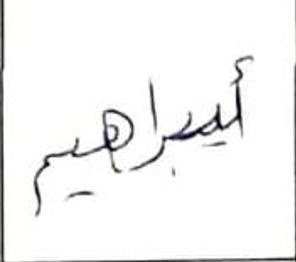 أيبراهيم